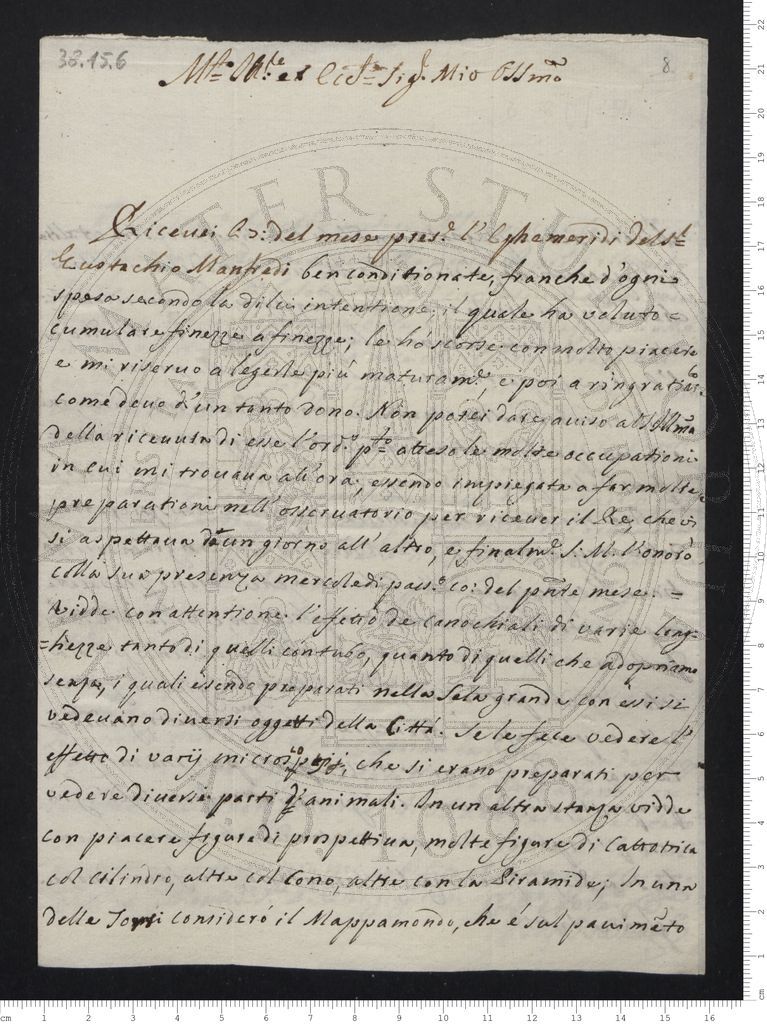 38.15.6
8
M.to Ill.re et Ecc.te Sig.r Mio Oss.mo
Riceuei li 3: del mese pres.e l'Ephemeridi del S.r
Eustachio Manfredi ben conditionate, franche d'ogni
spesa secondo la di lei intentione, il quale ha voluto =
cumulare finezze a finezze; le hó scorse con molto piacere
e mi riseruo a legerle piú maturam.e, e poi a ringratiar.lo
come deuo d'un tanto dono. Non potei dare auiso a V.S. Ill.ma
della riceuuta di esse l'ord.o p.to atteso le molte occupationi
in cui mi trouaua all'ora, essendo impiegato a far molte
preparationi nell'osseruatorio per riceuer il Re, che ui
si aspettaua da un giorno all'altro, e finalm.e S. M. l'onorò
colla sua presenza mercoledi pass.o co: del pñte mese. =
Vidde con attentione l'effetto de canochiali di varie long-
=hezze tanto di quelli con tubo, quanto di quelli che adopriamo
senza, i quali essendo preparati nella Sala grande con essi si
vedeuano diuersi oggetti della Cittá. Se le fece vedere l'
effetto di varij microscopij, che si erano preparati per
vedere diuerse parti d'animali. In un altra stanza vidde
con piacere figure di prospettiua, molte figure di Cattotrica
col Cilindro, altre col Cono, altre con la Piramide; In una
delle Torri consideró il Mappamondo, che é sul pauimẽto
ALMA MATER STUDIORUM
A.D. 1088